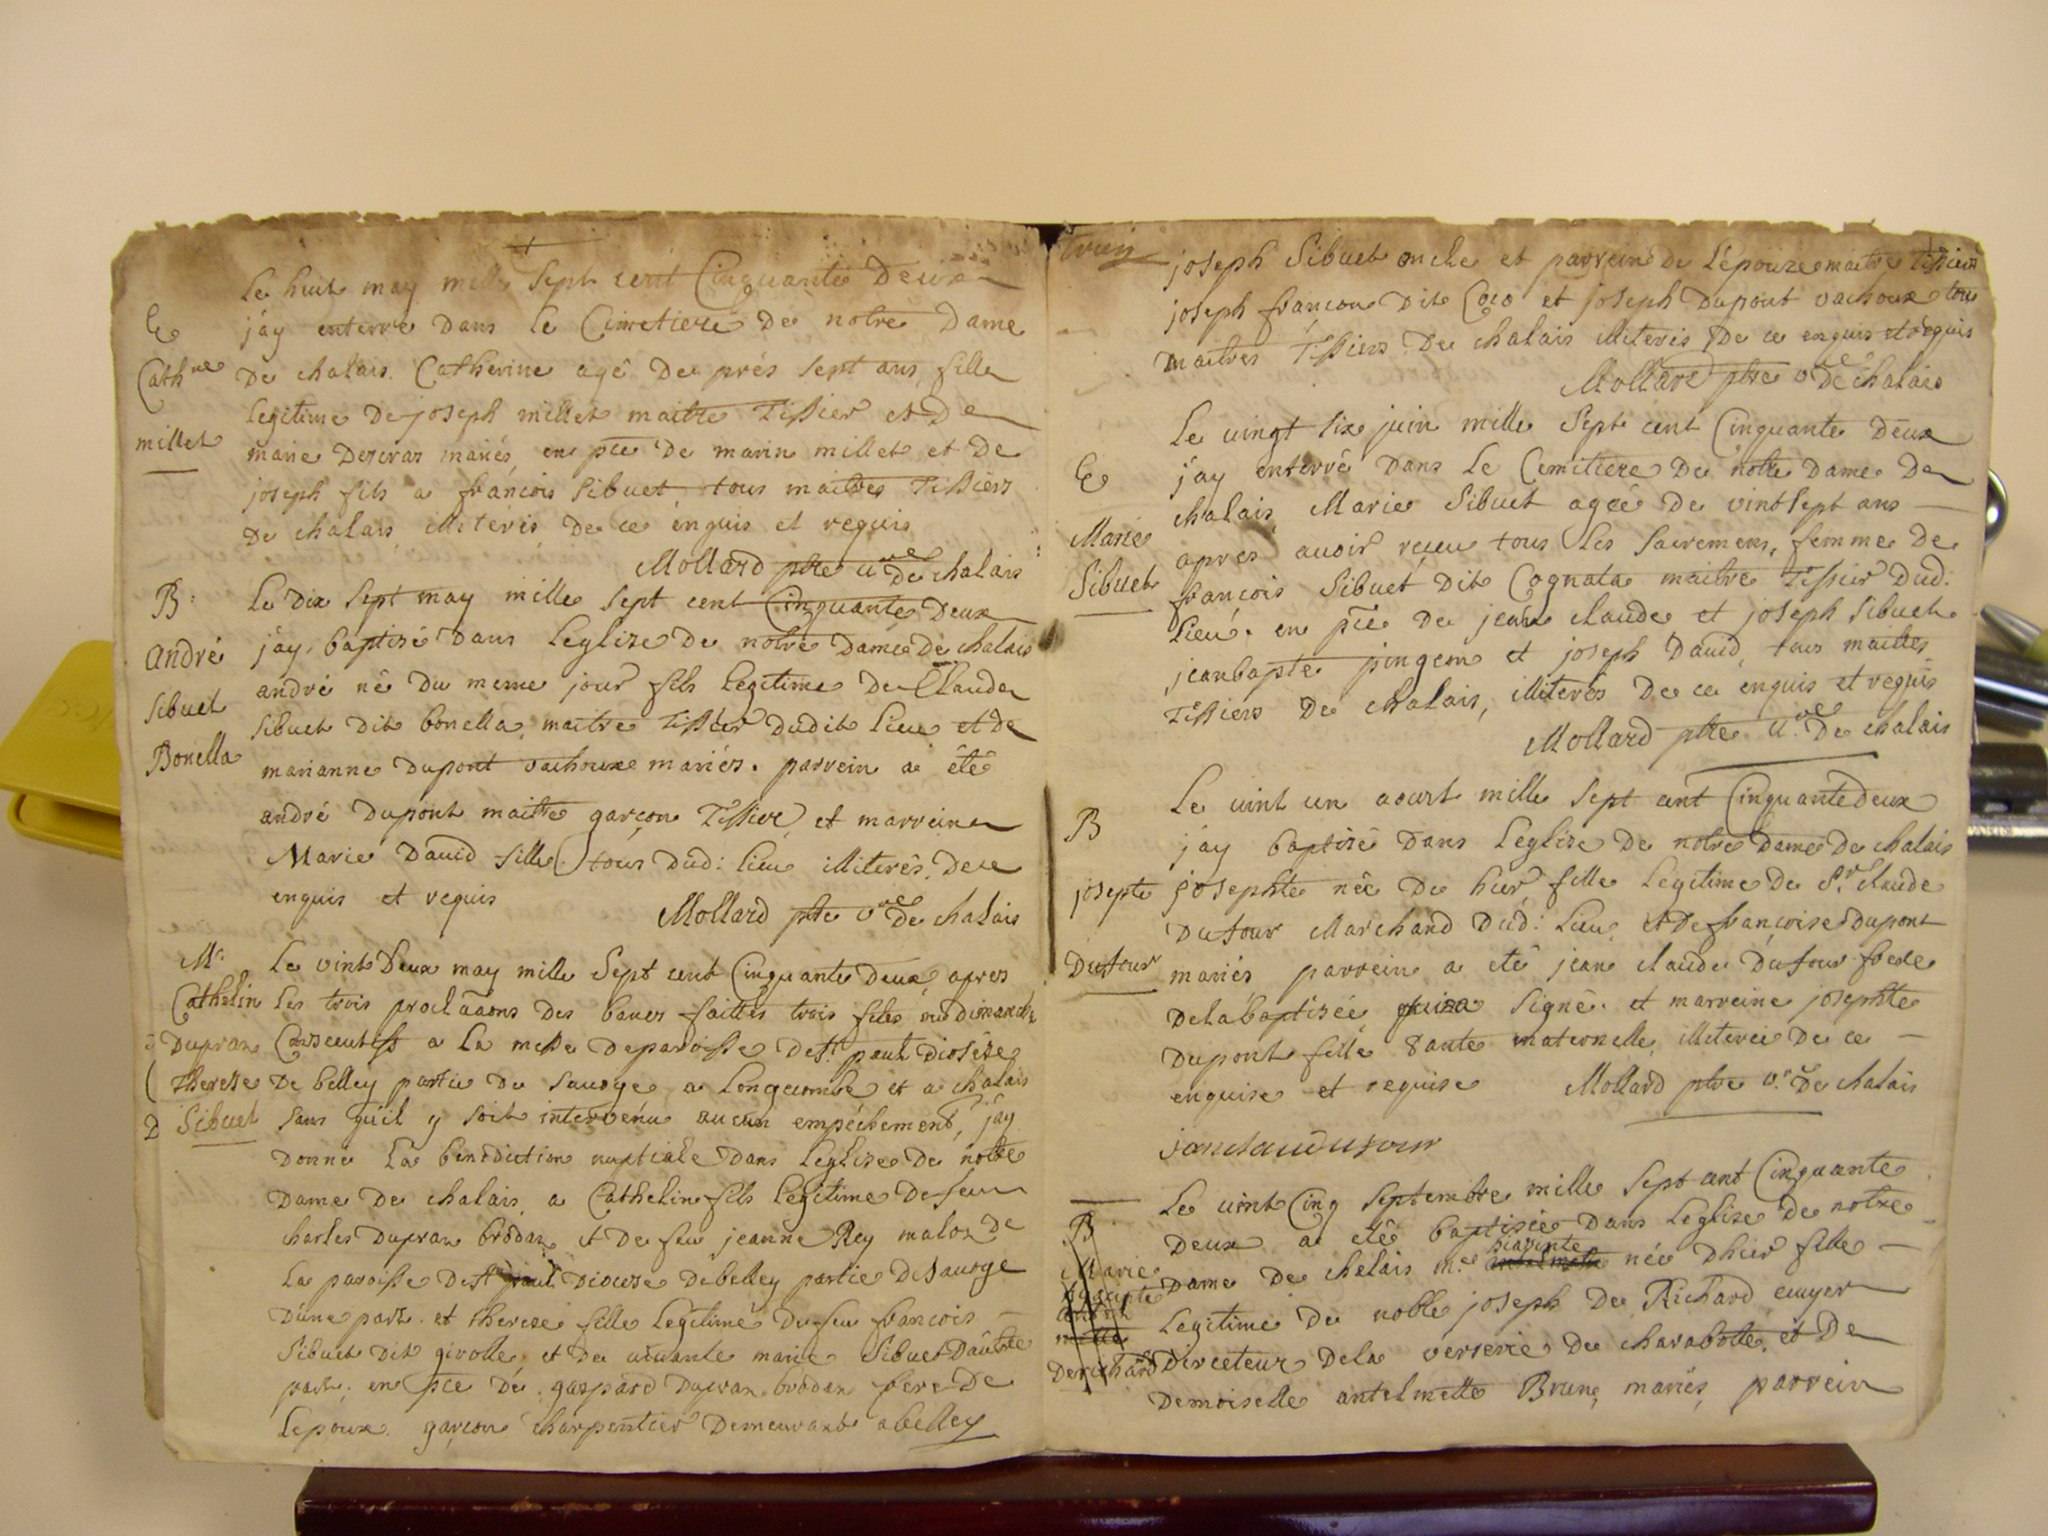 Le huit may mille sept cent Cinquante Deux
E
j'ay enterré Dans Le Cimetiere De notre Dame
Cathne
De chalais Catherine agé De prés sept ans fille
Legitime De joseph millet maitre Tissier et De
millet
marie Descras mariés en pce De marin millet et De
joseph fils a francois Sibuet tous maitres Tissiers
De chalais illiterés De ce enquis et requis
Mollard ptre vre De chalais
B:
Le Dix sept may mille sept cent Cinquante Deux
André
j'ay baptisé Dans Leglise De notre Dame De chalais
andré né Du meme jour fils Legitime De Claude
Sibuet
Sibuet Dit bonella maitre Tissier Dudit Lieu et De
Bonella
marianne Dupont vachoux mariés. parrein a été
andré Dupont maitre garçon Tissier et marreine
Marie David fille tous Dud: Lieu illiterés De ce
enquis et requis
Mollard ptre vre De chalais
Mr:
Le vint Deux may mille Sept cent Cinquante Deux apres
Cathelin
Les trois proclaâons Des bancs faittes trois
Dupran
Consecutifs a La messe De paroisse De St paul Diosése
Therese
De belley partie De Savoye a Longecombe et a chalais
Sibuet
Sans qu'il y soit intervenu aucun empéchement, j'ay
Donné La bénédiction nuptiale Dans Leglise De notre
Dame De chalais a Cathelin fils Legitime De feu
charles Dupran brodan et De feu jeanne Rey maloz De
La paroisse De St paul Diocese De belley partie De Savoye
D'une part. et therese fille Legitime De feu francois
Sibuet Dit girolle et De vivante marie Sibuet D'autre
part; en pce De gaspard Dupran brodan frere De
Lepoux garçon charpentier Demeurant a belley
joseph Sibuet oncle et parrein De L'épouze maitre Tissier
joseph francon Dit Coco et joseph Dupont vachoux tous
maitres Tissiers De chalais illiterés De ce enquis et requis
Mollard ptre vre De chalais
Le vingt six juin mille Sept cent Cinquante Deux
E
j'ay enterré Dans Le Cemitiere De notre Dame De
chalais Marie Sibuet agée De vint sept ans
Marie
apres avoir reçeu tous Les Sacremens, femme De
Sibuet
francois Sibuet Dit Cognata maitre Tissier Dud:
Lieu. en pce De jean claude et joseph Sibuet
jeanbapte pingeon et joseph David, tous maitres
Tissiers De chalais, illiterés De ce enquis et requis
Mollard ptre vre De chalais
Le vint un aoust mille sept cent Cinquante deux
B
j'ay baptisé Dans Leglise De notre Dame De chalais
josepte
josephte née De hier fille Legitime De Sr. claude
Dufour Marchand Dud: Lieu et De françoise Dupont
Dufour
mariés parrein a eté jean claude Dufour frere
De la baptisée qui a signé. et marreine josephte
Dupont fille tante maternelle illiterée De ce
enquise et requise Mollard ptre vr. De chalais
janclaudufour
Le vint Cinq Septembre mille Sept cent Cinquante
B
Deux a eté baptisée Dans Leglise De notre
hiacinte
Marie
Dame De chelais me. née D'hier fille
Legitime De noble joseph De Richard ecuyer
De richard
Directeur De la verrerie De charabotte et De
Demoiselle antelmette Brun mariés, parrein